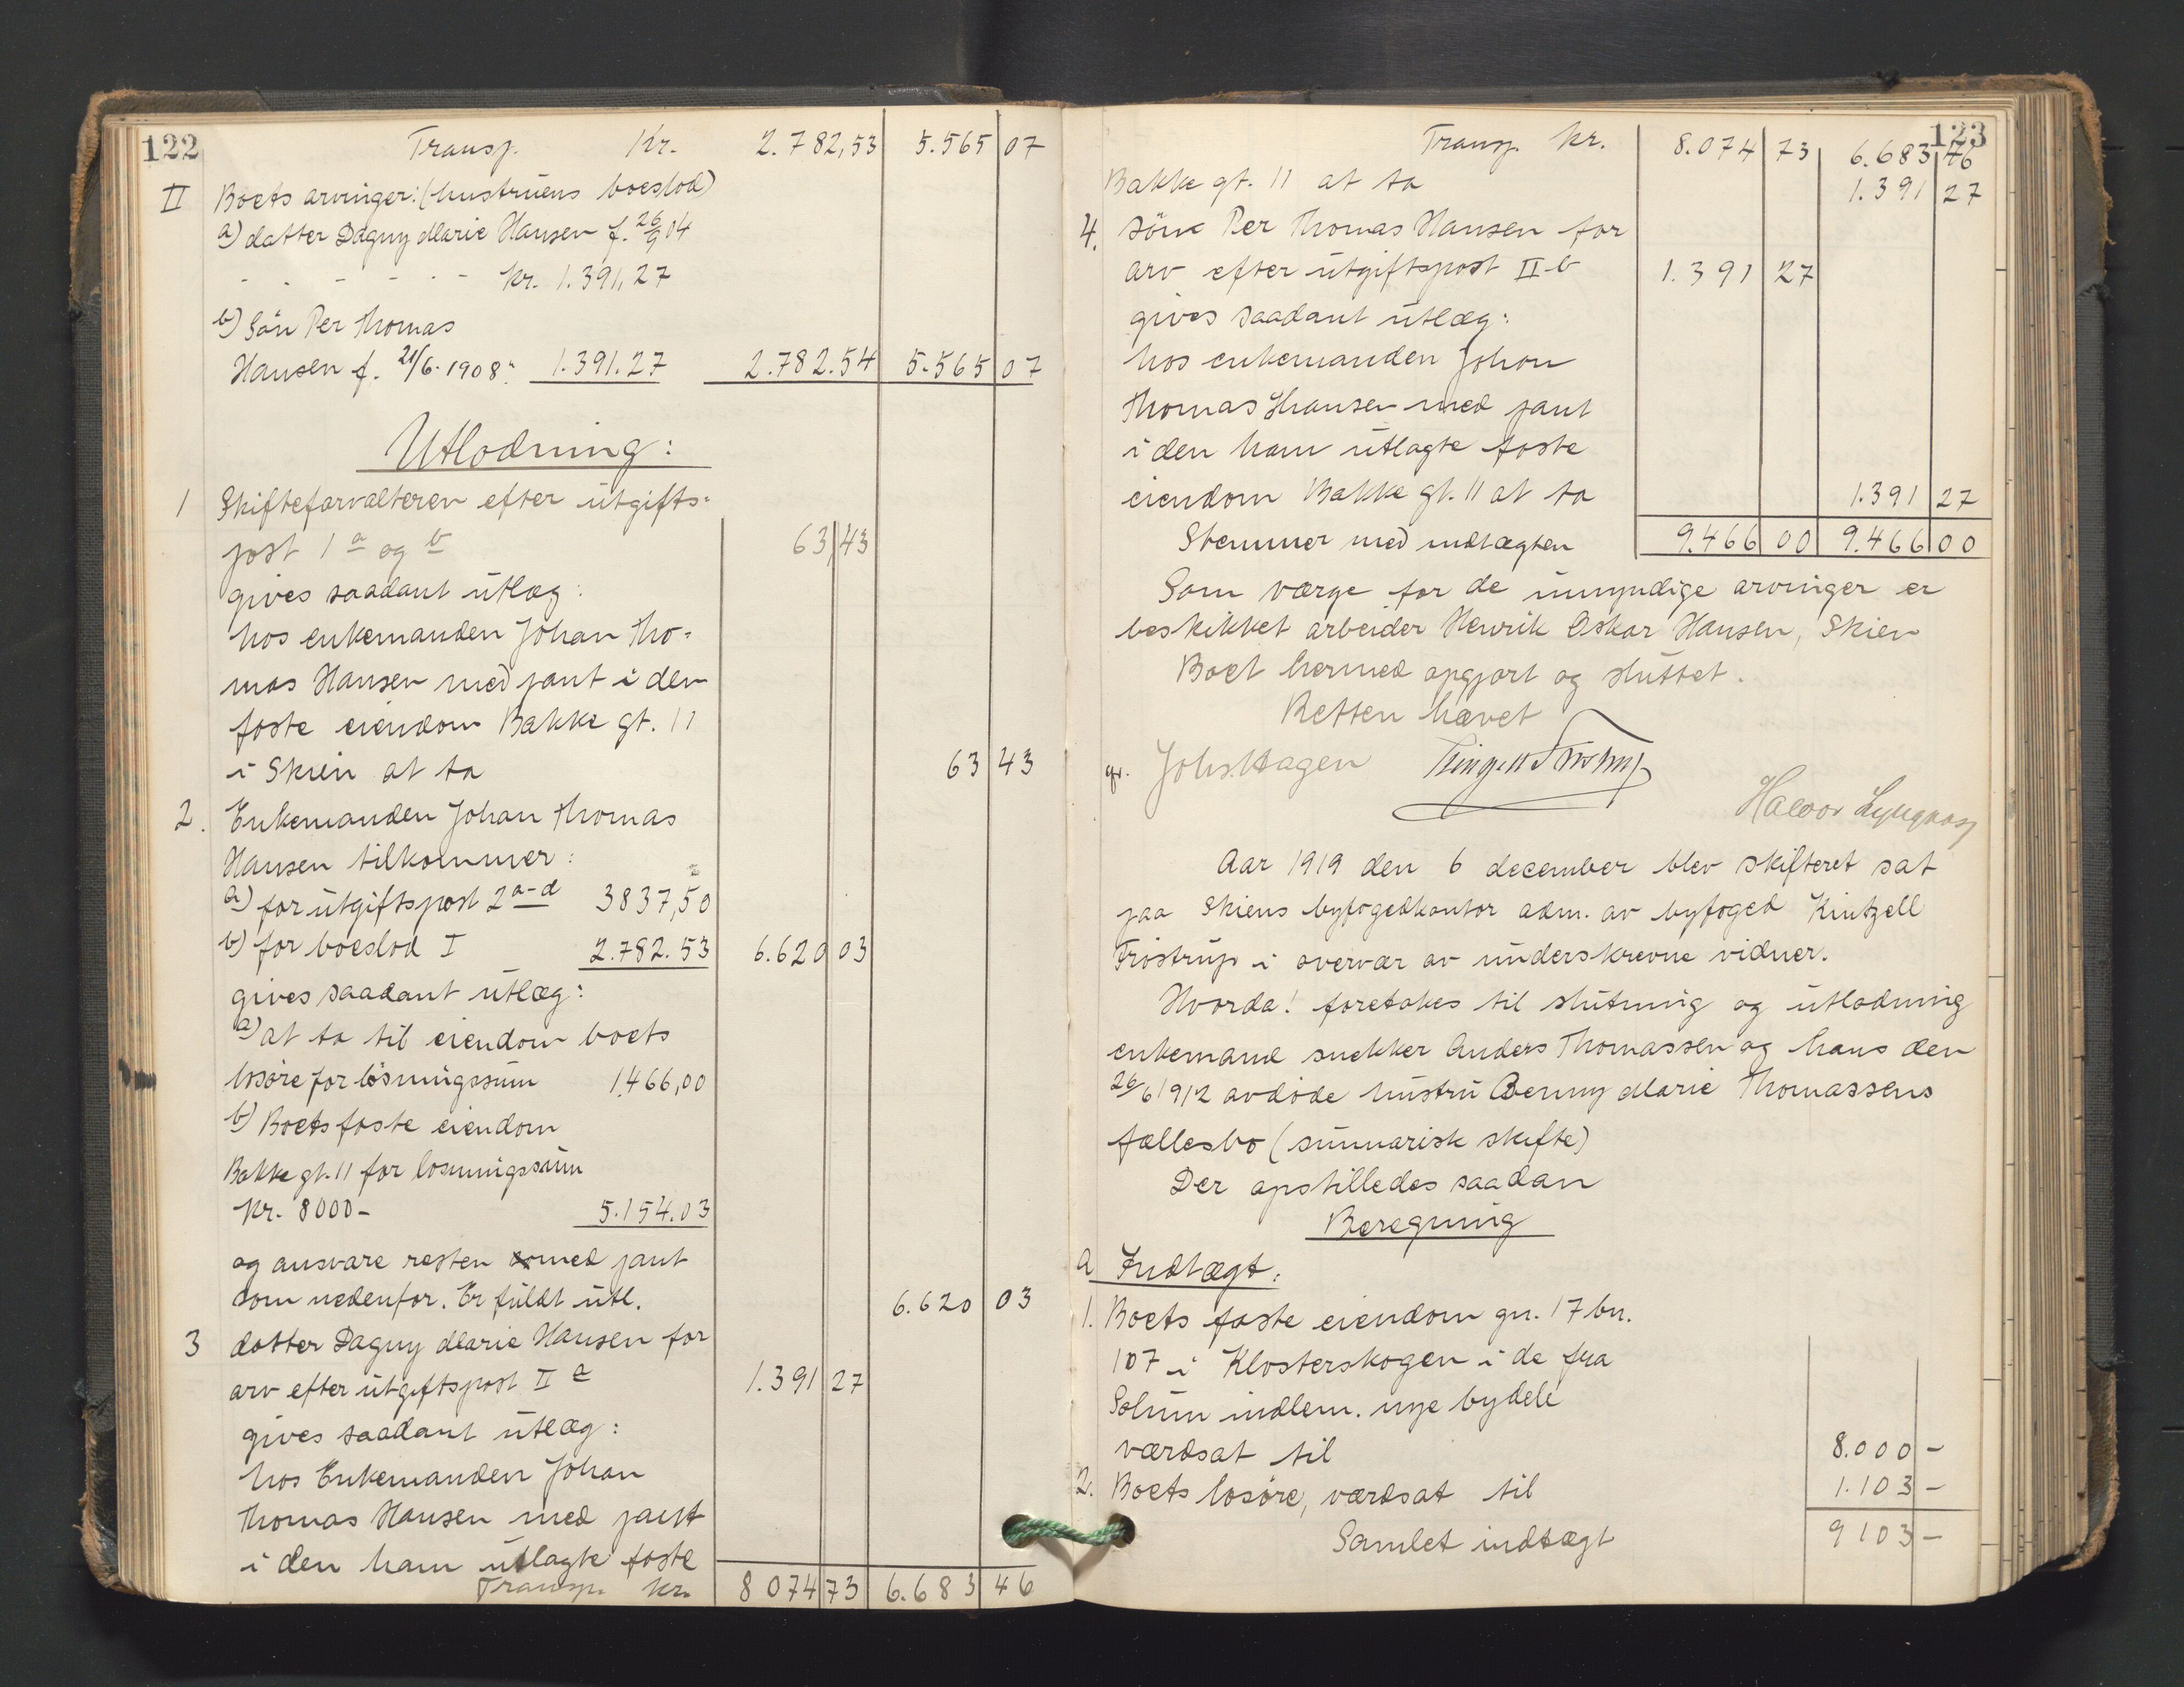 122
Transp. Kr. 2.782,53 5.565 07
II Boets arvinger: (hustruens boeslod)
a) datter Dagny Marie Hansen f. 26/9 04
- - - - - - kr. 1.391,27
b) Sön Per Thomas
Hansen f. 21/6 1908: 1.391.27 2.782.54 5.565 07
Utlodning:
1 Skifteforvalteren efter utgifts=
post 1 a og b 63 43
gives saadant utlæg:
hos enkemanden Johan Tho=
mas Hansen med pant i den
faste eiendom Bakke gt. 11
i Skien at ta 63 43
2. Enkemanden Johan Thomas
Hansen tilkommer:
a) for utgiftspost 2 a-d 3837,50
b) for boeslod I 2.782.53 6.620 03
gives saadant utlæg:
a) at ta til eiendom boets
løsøre for løsningssum 1.466,00
b) Boets faste eiendom
Bakke gt. 11 for løsningssum
Kr. 8000- 5.154.03
og ansvare resten med pant
som nedenfor. Er fuldt utl. 6.620 03
3 datter Dagny Marie Hansen for
arv efter utgiftspost II a 1.391 27
gives saadant utlæg:
hos Enkemanden Johan
Thomas Hansen med pant
i den ham utlagte faste
Transp. kr. 8074 73 6.683 46
123
Transp. kr. 8.074 73 6.683 46
Bakke gt. 11 at ta 1.391 27
4. sönn Per Thomas Hansen for
arv efter utgiftspost II b 1.391 27
gives saadant utlæg:
hos enkemanden Johan
Thomas Hansen med pant
i den ham utlagte faste
eiendom Bakke gt. 11 at ta 1.391 27
Stemmer med indtægten 9.466 00 9.466 00
Som værge for de umyndige arvinger er
beskikket arbeider Henrik Oskar Hansen, Skien
Boet hermed opgjort og sluttet.
Retten hævet
Johs. Hagen Kintzell Frøstrup
Halvor Lyngaas
Aar 1919 den 6 december blev skifteret sat
paa Skiens byfogedkontor adm. av byfoged Kintzell
Frøstrup i overvær av underskrevne vidner.
Hvorda! foretokes til slutning og utlodning
enkemand snekker Anders Thomassen og hans den
26/6 1912 avdøde hustru Benny Marie Thomassens
fællesbo (summarisk skifte)
Der opstilledes saadan
Beregning
A Indtægt:
1. Boets faste eiendom gn. 17 bn.
107 i Klosterskogen i de fra
Solum indlem. nye bydele
værdsat til 8.000 -
2. Boets løsøre, værdsat til 1.103 -
Samlet indtægt 9103 -